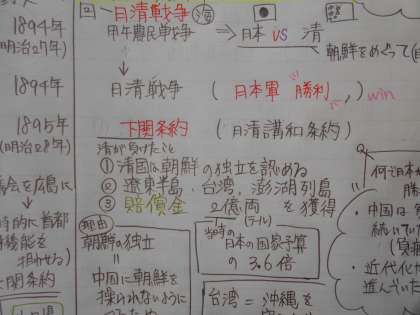 2 日清戦争 清
甲午農民戦争 ⇒ 日本 VS 清
朝鮮をめぐって
1894年
(明治27年)
↓
1894年
日清戦争 ( 日本軍 勝利 ) win
1895年
(明治28年)
下関条約 (日清講和条約)
清が負けたこと
① 清国は朝鮮の独立を認める
② 遼東半島、台湾、澎湖列島
③ 賠償金 2億両 を獲得
(テール)
理由
朝鮮の独立
=
中国に朝鮮を
操られないように
当時の
日本の国家予算
の 3.6倍
台湾 = 沖縄を
会を広島に
時的に首都
機能を
担わせる)
下関条約
Q
何で日本が
勝
・中国は
続いていた
・近代化
進んでいた